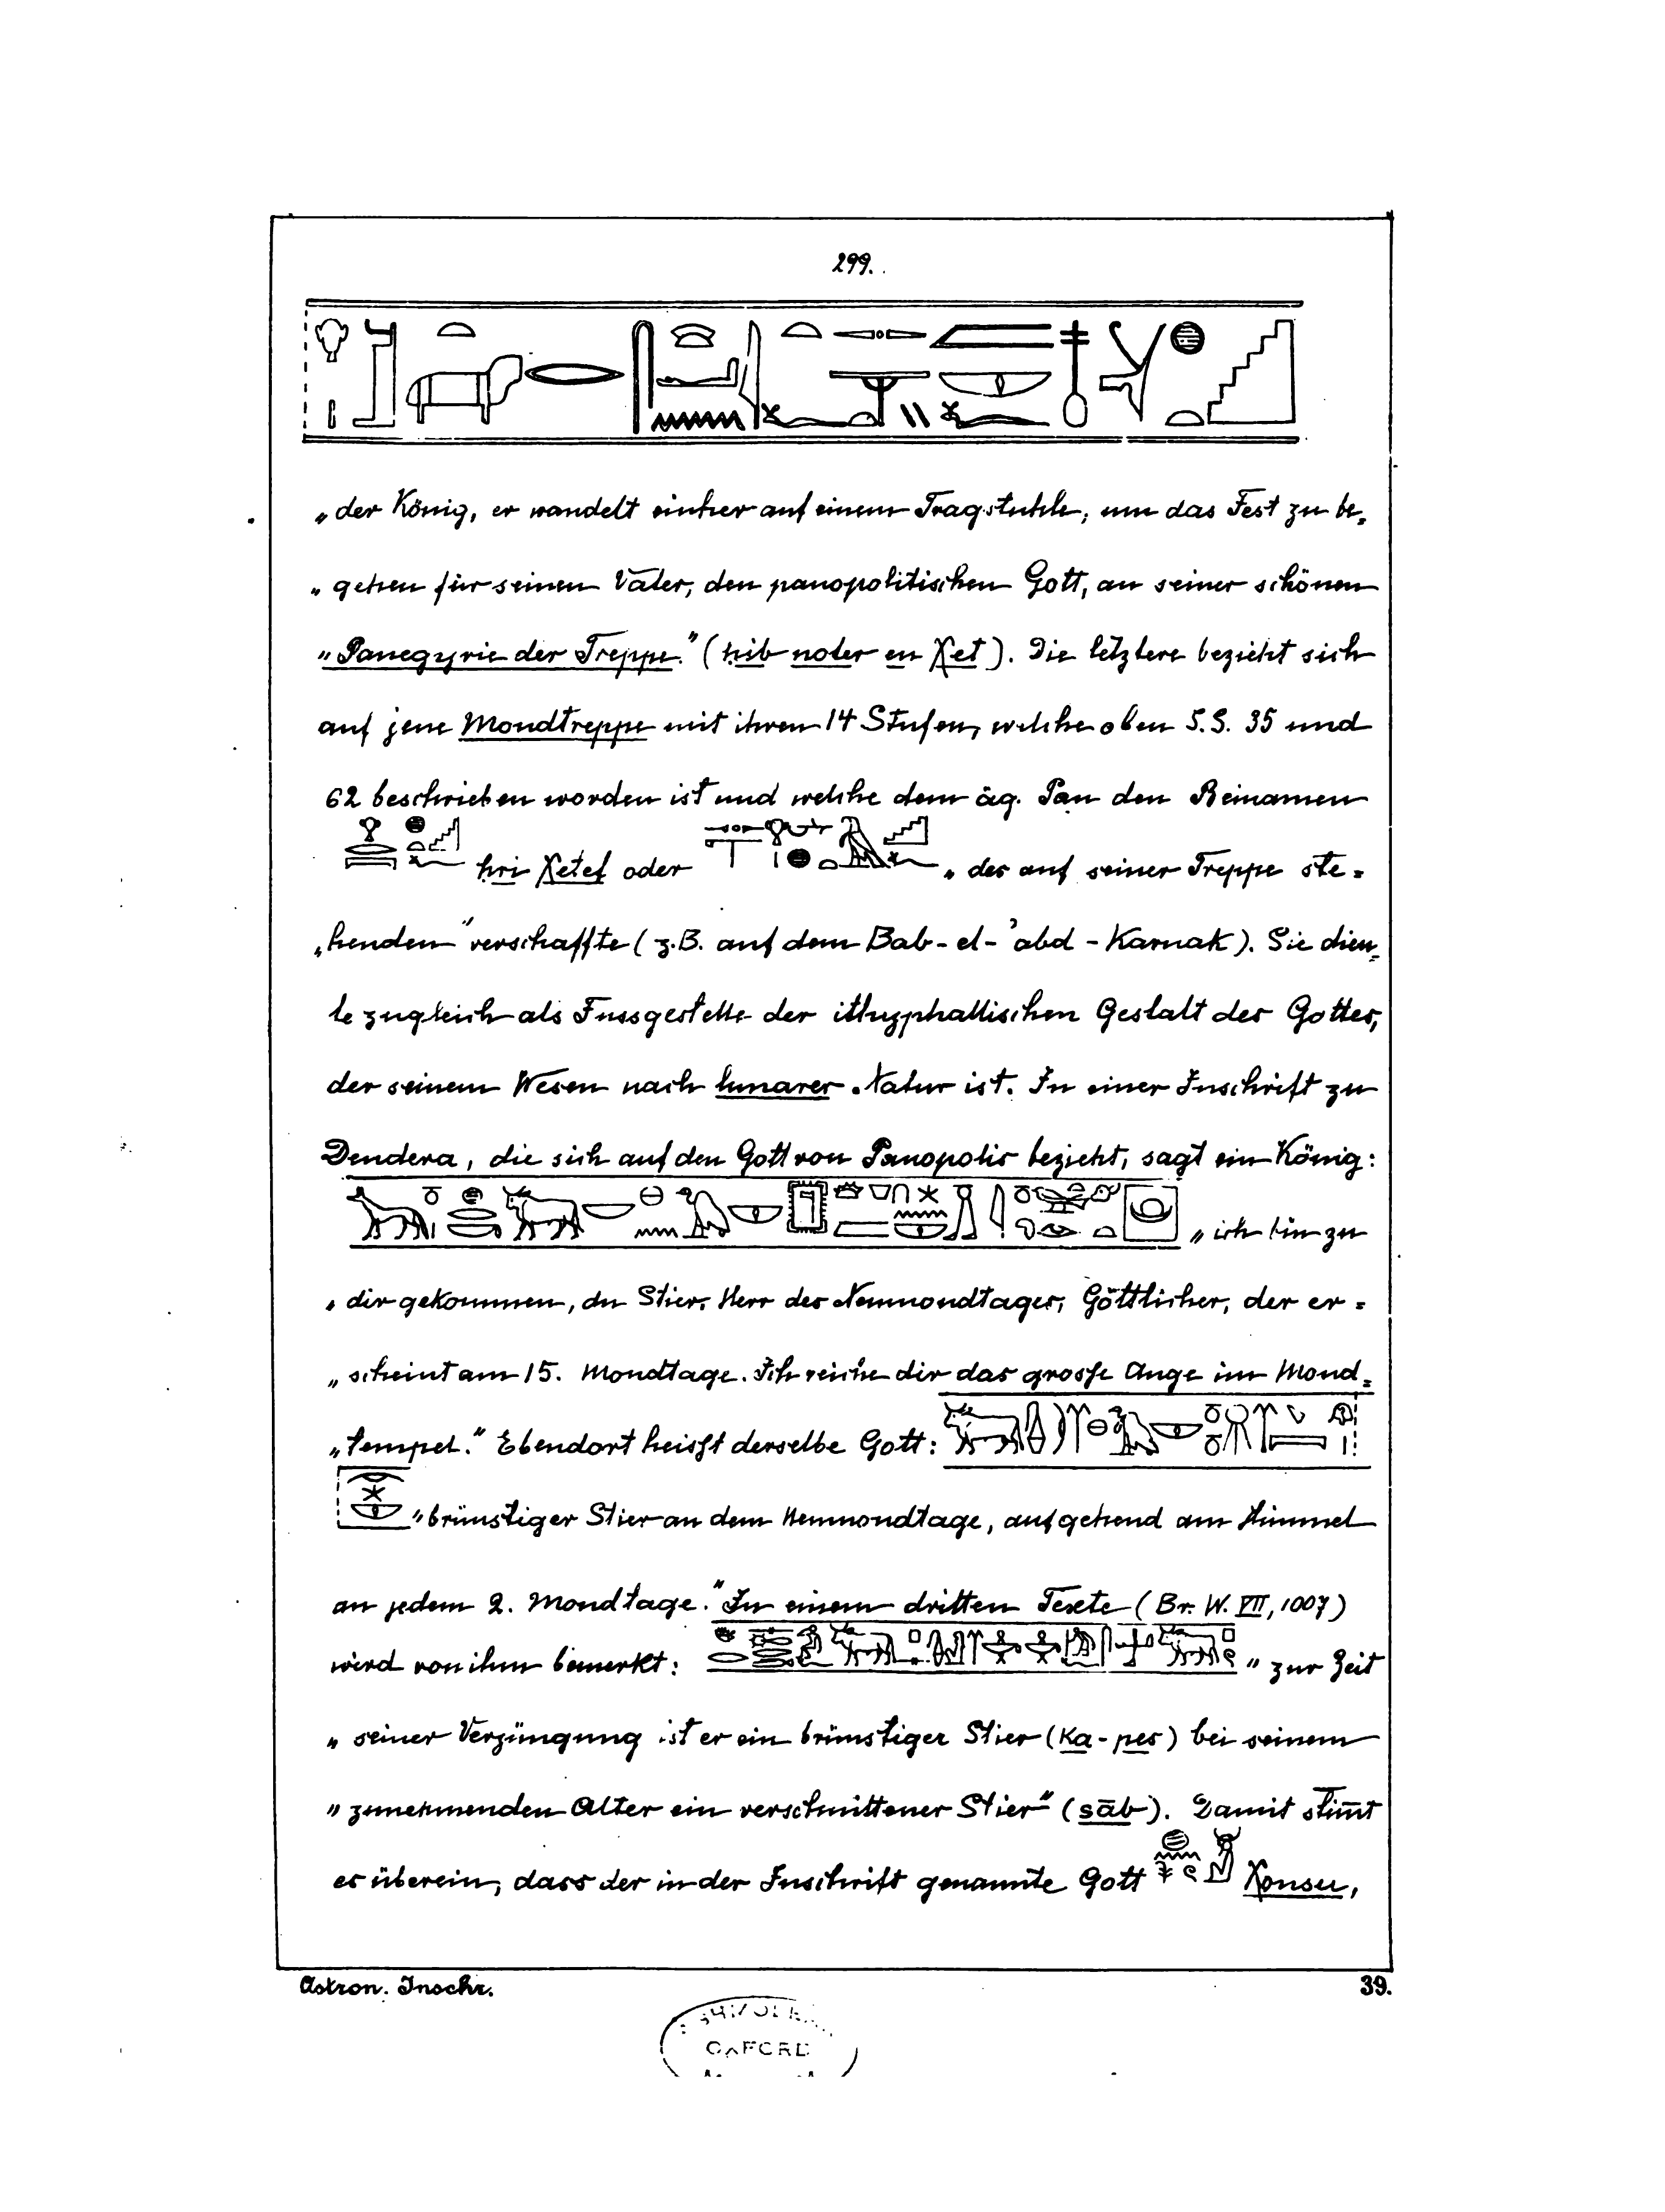 299.
„der König, er wandelt einher auf einem Tragstuhle, um das Fest zu be-
„gehen für seinen Vater, den panopolitischen Gott, an seiner schönen
„Panegyrie der Treppe." (hib noter en Xet). Die letztere bezieht sich
auf jene Mondtreppe mit ihren 14 Stufen, welche oben S.S. 35 und
62 beschrieben worden ist und welche dem äg. Pan den Beinamen
hri Xetef oder „des auf seiner Treppe ste-
„henden" verschaffte (z.B. auf dem Bab-el-'abd-Karnak). Sie dien-
te zugleich als Fussgestelle der ithyphallischen Gestalt des Gottes,
der seinem Wesen nach lunarer Natur ist. In einer Inschrift zu
Dendera, die sich auf den Gott von Panopolis bezieht, sagt ein König:
„ich bin zu
„dir gekommen, du Stier, Herr des Neumondtages, Göttlicher, der er-
„scheint am 15. Mondtage. Ich reiche dir das grosse Auge im Mond-
„tempel." Ebendort heisst derselbe Gott:
„brünstiger Stier an dem Neumondtage, aufgehend am Himmel
an jedem 2. Mondtage." In einem dritten Texte (Br. W. VII, 1007)
wird von ihm bemerkt: „zur Zeit
„seiner Verjüngung ist er ein brünstiger Stier (ka-pes) bei seinem
„zunehmenden Alter ein verschnittener Stier" (sāb). Damit stim̄t
es überein, dass der in der Inschrift genannte Gott Xonsu,
Astron. Inschr. 39.
OXFORD